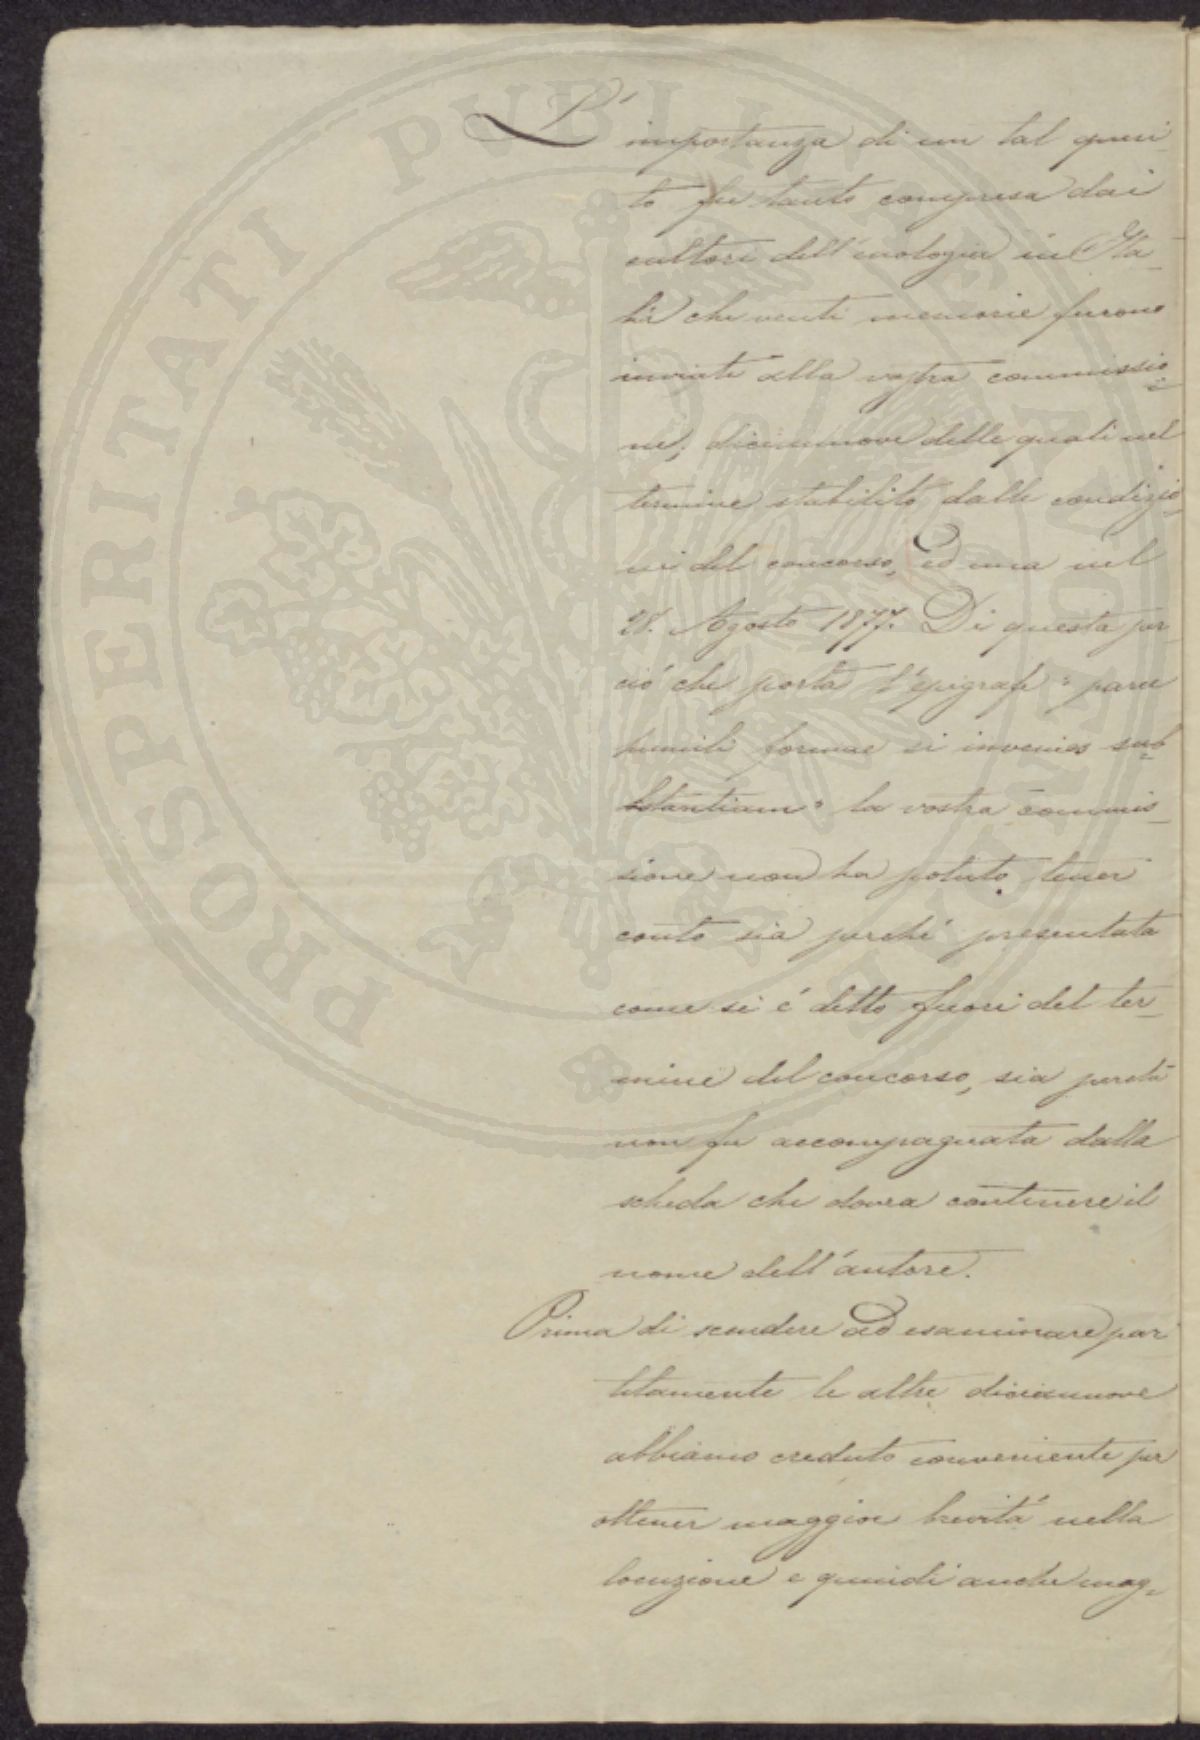 L'importanza di un tal quesi-
to fu tanto compresa dai
cultori dell'enologia in Ita-
lia che venti memorie furono
inviate alla vostra commissio-
ne, diciannove delle quali nel
termine stabilito dalle condizio-
ni del concorso, ed una nel
28. Agosto 1877. Di questa per-
ciò che porta l'epigrafe "parce
humili formae si invenies sub-
stantiam" la vostra commis-
sione non ha potuto tener
conto sia perché presentata
come si é detto fuori del ter-
mine del concorso, sia perché
non fu accompagnata dalla
scheda che dovea contenere il
nome dell'autore.
Prima di scendere ad esaminare par
titamente le altre diciannove
abbiamo creduto conveniente per
ottener maggior brevitá nella
locuzione e quindi anche mag-
PROSPERITATI PUBLICAE AUGENDAE